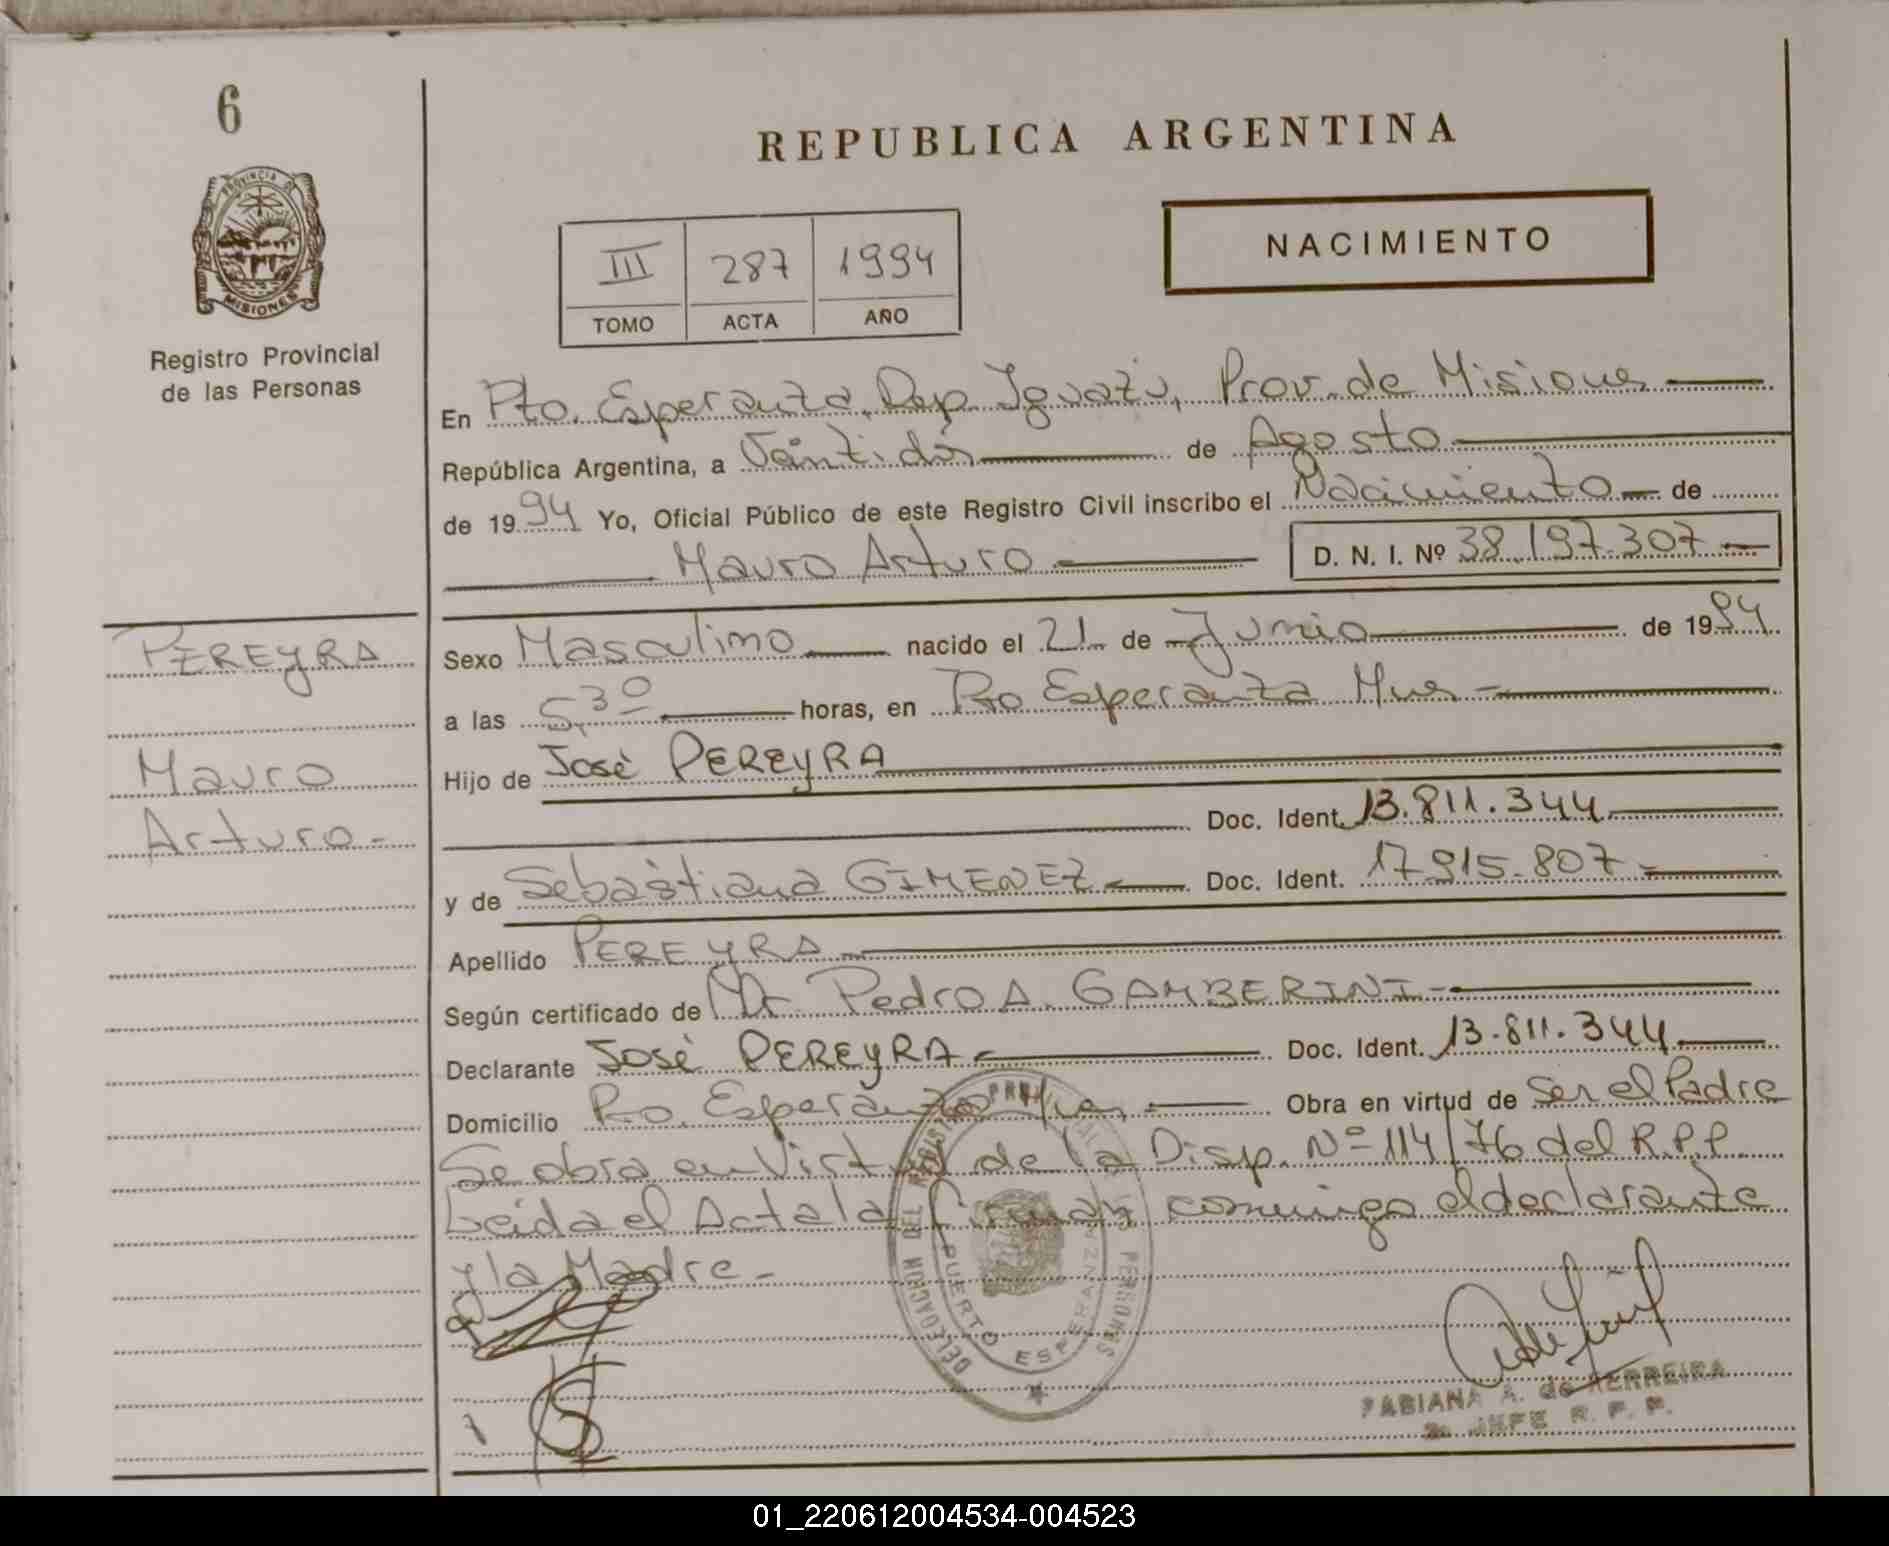 6
PROVINCIA DE
MISIONES
Registro Provincial
de las Personas
REPUBLICA ARGENTINA
NACIMIENTO
III 287 1994
TOMO ACTA AÑO
En Pto. Esperanza, Dep. Iguazú, Prov. de Misiones
República Argentina, a Veintidós de Agosto
de 1994 Yo, Oficial Público de este Registro Civil inscribo el Nacimiento de
Mauro Arturo D. N. I. Nº 38.197.307
PEREYRA
Mauro
Arturo-
Sexo Masculino nacido el 21 de Junio de 1994
a las 5,30 horas, en Pto Esperanza Mnes
Hijo de José PEREYRA
Doc. Ident. 13.811.344
y de Sebastiana GIMENEZ Doc. Ident. 17.915.807
Apellido PEREYRA
Según certificado de Dr. Pedro A. GAMBERINI
Declarante José PEREYRA Doc. Ident. 13.811.344
Domicilio Pto. Esperanza Mnes, Obra en virtud de Ser el Padre
Se obra en Virtud de la Disp. Nº 114/76 del R.P.P.
Leida el Acta la firman conmigo el declarante
y la Madre-
DELEGACION DEL REGISTRO PROVINCIAL DE LAS PERSONAS
PUERTO ESPERANZA
FABIANA A. de FERREIRA
JEFE R. P. P.
01_220612004534-004523